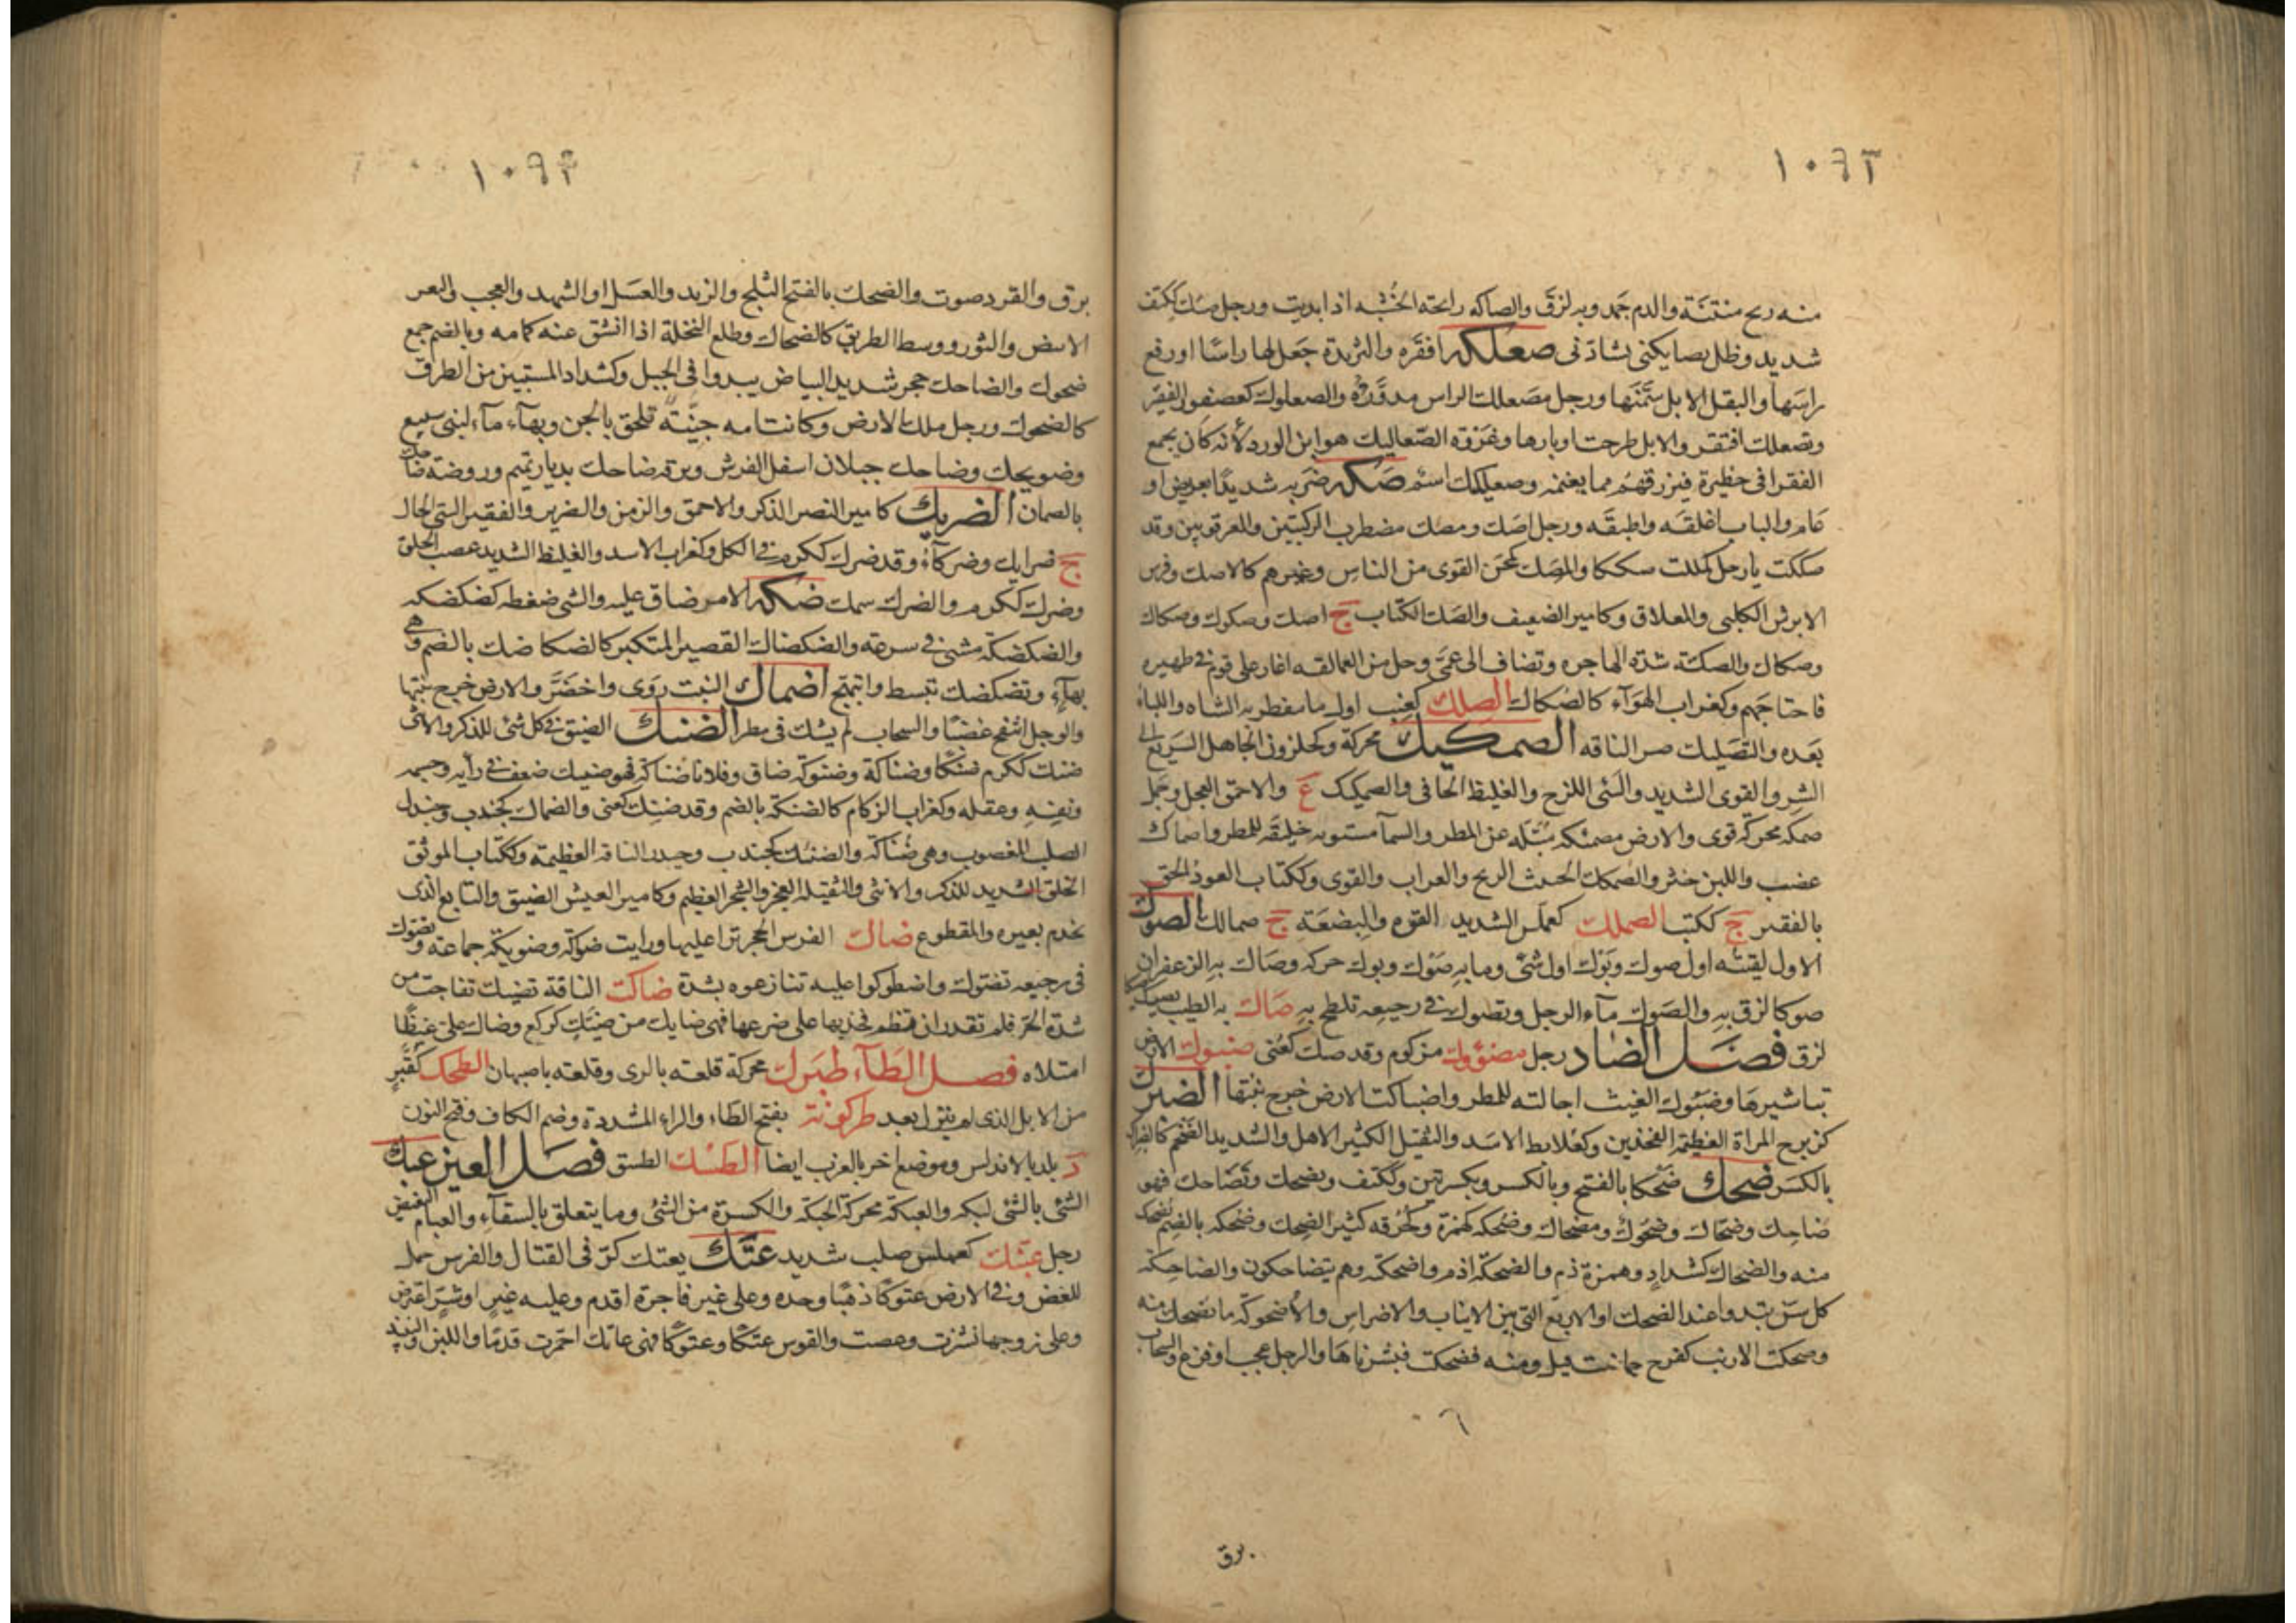 ١٠٩٢
منه ريح منتنة والدم جمد وبه لزق والصاكه رائحة الخشبه اذا نديت ورجل صئك ككتف
شديد وظل يصايكنى يشادنى صعلكه افقره والثريدة جعل لها راسا او رفع
راسها والبقل الابل سمنها ورجل مصعلك الراس مدوره والصعلوك كعصفور الفقير
وتصعلك افتقر والابل طرحت اوبارها وعروة الصعاليك هو ابن الورد لانه كان يجمع
الفقرا فى حظيرة فيرزقهم مما يغنمه وصعيليك اسم صكه ضربه شديدا بعريض او
عام والباب اغلقه واطبقه ورجل اصك ومصك مضطرب الركبتين والعرقوبين وقد
صككت يا رجل كمللت سككا والمصك كمجن القوى من الناس وغيرهم كالاصك وفرس
الابرش الكلبى والمعلاق وكامير الضعيف والصك الكتاب ج اصك وصكوك وصكاك
وصكاك والصكة شدة الهاجره وتضاف الى عمى رجل من العمالقه اغار على قوم فى ظهيره
فاجتاحهم وكغراب الهواء كالصكاك الصلك كعنب اول ما يتفطر به الشاه واللباء
بعده والتصليك صر الناقه الصمكيك محركة وكحلزون الجاهل السريع الى
الشر والقوى الشديد والشى اللزج والغليظ الجافى والصمكيك ع والاحمق العجل وجمل
صمكه محركة قوى والارض مصمئكه مبتله عن المطر والسما مستويه خليقه للمطر واصماك
غضب واللبن خثر والصمكك الخبث الريح والعراب والقوى وككتاب العود الحق
بالفقر ج ككتب الصملك كعملس الشديد القوه والبضعة ج صمالك الصوك
الاول لقيته اول صوك وبوك اول شئ وما به صوك وبوك حركه وصاك به الزعفران
صوكا لزق به والصوك ماء الرجل وتصوك فى رجيعه تلطخ به صاك به الطيب يصيك
لزق فصل الضاد رجل مضؤوك مزكوم وقد ضئك كعنى ضبوك الارض
تباشيرها وضبوك الغيث اجالته للمطر واضباكت الارض خرج نبتها الضبرك
كزبرج المراة العظيمة الفخذين وكعلابط الاسد والثقيل الكثير الاهل والشديد الضخم كالضبراك
بالكسر ضحك ضحكا بالفتح وبالكسر وبكسرتين وككتف وتضحك وتضاحك فهو
ضاحك وضحاك وضحوك ومضحاك وضحكه كهمزة وحزقه كثير الضحك وضحكه بالضم يضحك
منه والضحاك كشداد وهمزة ذم والضحكة اذم واضحكته وهم يتضاحكون والضاحكة
كل سن تبدوا عند الضحك او الاربع التى بين الانياب والاضراس والاضحوكة ما يضحك منه
وضحكت الارنب كفرح حاضت قيل ومنه فضحكت فبشرناها والرجل عجب او فزع والسحاب
٦
برق
١٠٩٣
برق والقرد صوت والضحك بالفتح الثلج والزبد والعسل او الشهد والعجب والثغر
الابيض والنور ووسط الطريق كالضحاك وطلع النخلة اذا انشق عنه كمامه وبالضم جمع
ضحوك والضاحك حجر شديد البياض يبدوا فى الجبل وكشداد المستبين من الطرق
كالضحوك ورجل ملك الارض وكانت امه جنية فلحق بالجن وبهاء ماء لبنى سبيع
وضويحك وضاحك جبلان اسفل الفرش وبرقه ضاحك بديار تميم وروضة ضاحك
بالصمان الضريك كامير النسر الذكر والاحمق والزمن والضرير والفقير السئ الحال
ج ضرايك وضركاء وقد ضرك ككرم فى الكل وكغراب الاسد والغليظ الشديد عصب الخلق
وضرك ككرم والضرك سمك ضكه الامر ضاق عليه والشى ضغطه كضكضكه
والضكضكة مشى فى سرعة والضكضاك القصير المكتنز كالضكاضك بالضم وهى
بهاء وتضكضك تبسط وابتهج اضماك النبت روى واخضر والارض خرج نبتها
والرجل انتفخ غضبا والسحاب لم يشك فى مطر الضنك الضيق فى كل شئ للذكر والانثى
ضنك ككرم ضنكا وضناكة وضنوكة ضاق وفلانا ضناكة فهو ضنيك ضعف فى رايه وجسمه
ونفسه وعقله وكغراب الزكام كالضنكة بالضم وقد ضنك كعنى والضناك كجندب وجندل
الصلب المعصوب وهى ضناكه والضنئك كجندب وجندل الناقه العظيمة وككتاب الموثق
الخلق الشديد للذكر والانثى والثقيلة العجز والشجر العظيم وكامير العيش الضيق والتابع الذى
يخدم بعيره والمقطوع ضاك الفرس الحجر نزا عليها ورايت ضوكة وضويكة جماعة وتضوك
فى رجيعه تضوك واضطوكوا عليه تنازعوه بشدة ضاكت الناقة تضيك تفاجت من
شدة الحر فلم تقدر ان تضم فخذيها على ضرعها فهى ضايك من ضيك كركع وضاك على غيظا
امتلاه فصل الطاء طبرك محركة قلعة بالرى وقلعة باصبهان الطحك كقبر
من الابل الذى لم يتبزل بعد طركونة بفتح الطاء والراء المشددة وضم الكاف وفتح النون
د بلد بالاندلس وموضع اخر بالغرب ايضا الطسك الطسق فصل العين عبك
الشئ بالشئ لبكه والعبكة محركة الحبكة والكسرة من الشئ وما يتعلق بالسقاء والعبام البغيض
رجل عبنك كعملس صلب شديد عتك يعتك كر فى القتال والفرس حمل
للعض وفى الارض عتوكا ذهب وحده وعلى غير فاجرة اقدم وعليه بخير او شر اعترض
وعلى زوجها نشزت وعصت والقوس عتكا وعتوكا فهى عاتك احمرت قدما واللبن والنبيذ